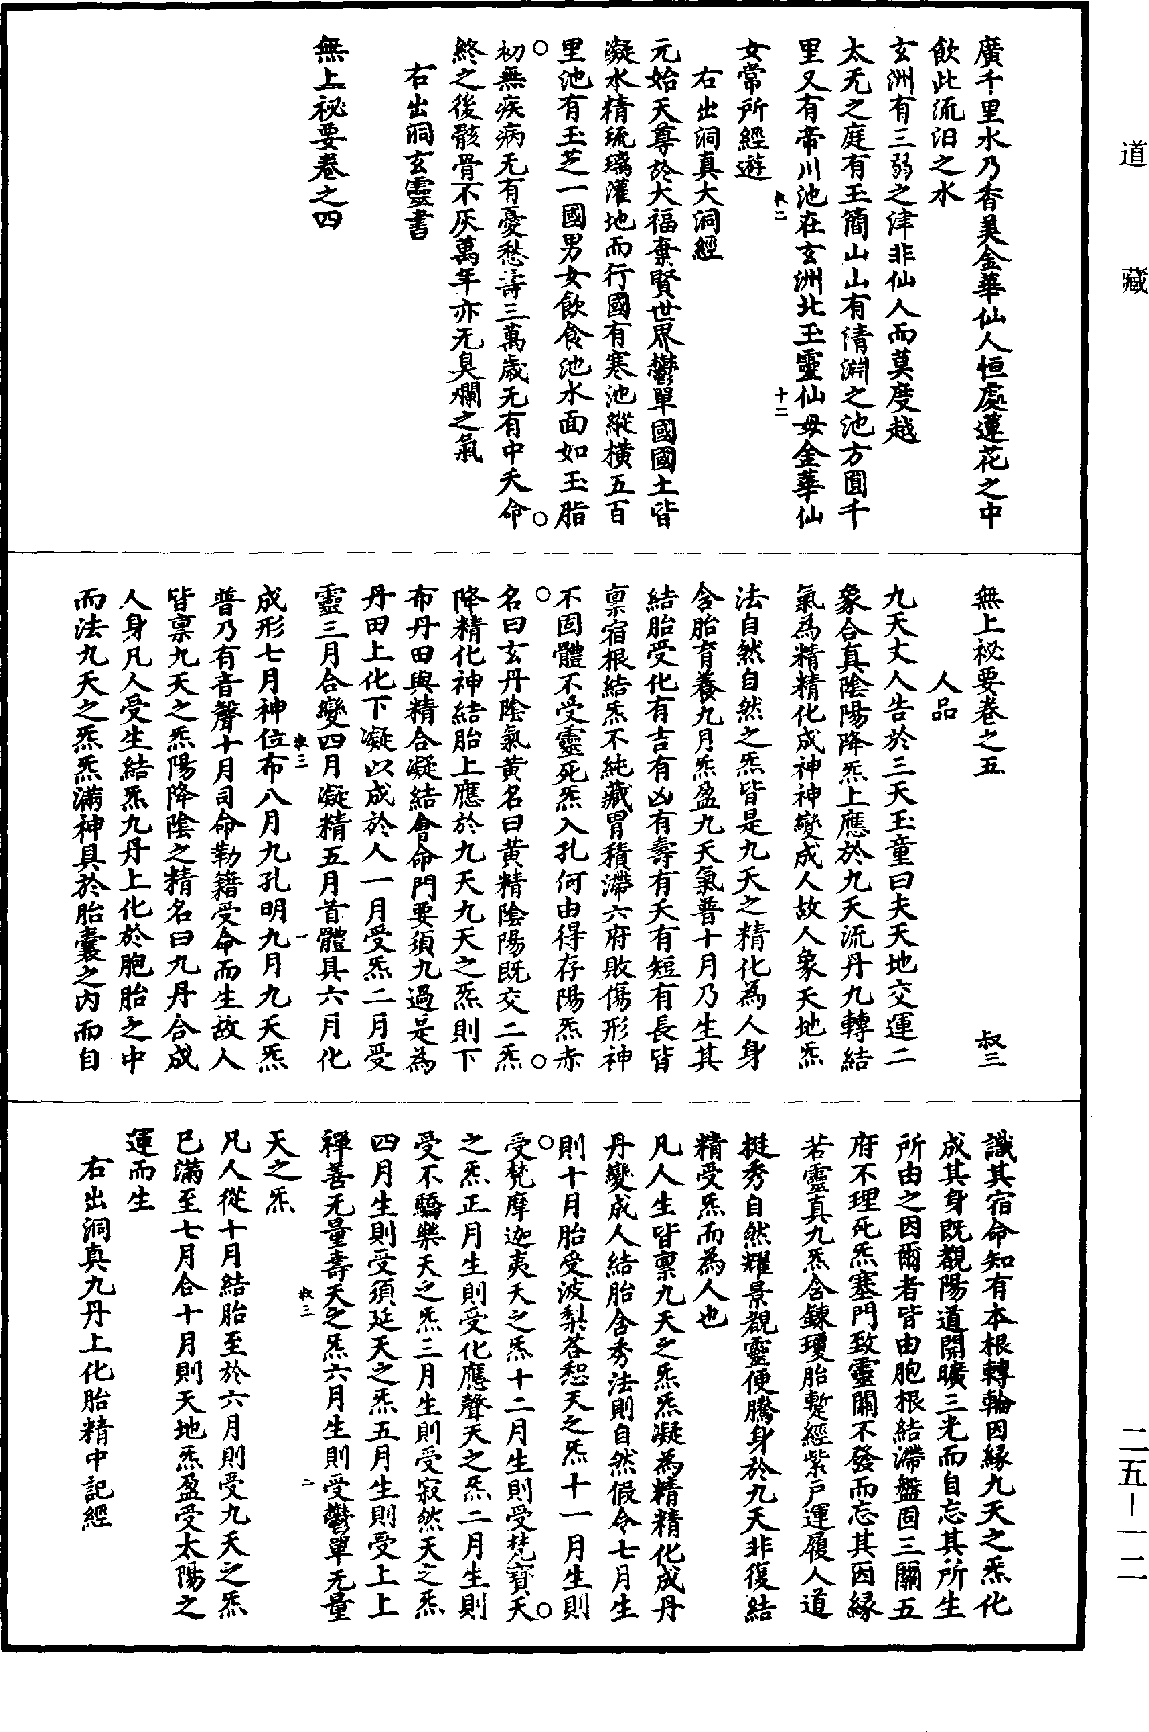 道藏
廣千里水乃香美金華仙人恒處蓮花之中
飲此流汨之水
玄洲有三弱之津非仙人而莫度越
太无之庭有玉簡山山有清淵之池方圓千
里又有帝川池在玄洲北玉靈仙母金華仙
叔二
十二
女常所經遊
右出洞真大洞經
元始天尊於大福棄賢世界鬱單國國土皆
凝水精琉璃灌地而行國有寒池縱橫五百
里池有玉芝一國男女飲食池水面如玉脂
○
○
初無疾病无有憂愁壽三萬歲无有中夭命
終之後骸骨不灰萬年亦无臭爛之氣
右出洞玄靈書
無上祕要卷之四
無上祕要卷之五
叔三
人品
九天丈人告於三天玉童曰夫天地交運二
象合真陰陽降炁上應於九天流丹九轉結
氣為精精化成神神變成人故人象天地炁
法自然自然之炁皆是九天之精化為人身
含胎育養九月炁盈九天氣普十月乃生其
結胎受化有吉有凶有壽有夭有短有長皆
禀宿根結炁不純藏胃積滯六府敗傷形神
不固體不受靈死炁入孔何由得存陽炁赤
○
○
名曰玄丹陰氣黄名曰黄精陰陽既交二炁
降精化神結胎上應於九天九天之炁則下
布丹田與精合凝結會命門要須九過是為
丹田上化下凝以成於人一月受炁二月受
靈三月合變四月凝精五月首體具六月化
叔三
一
成形七月神位布八月九孔明九月九天炁
普乃有音聲十月司命勒籍受命而生故人
皆禀九天之炁陽降陰之精名曰九丹合成
人身凡人受生結炁九丹上化於胞胎之中
而法九天之炁炁滿神具於胎囊之内而自
識其宿命知有本根轉輪因緣九天之炁化
成其身既覩陽道開曠三光而自忘其所生
所由之因爾者皆由胞根結滯盤固三關五
府不理死炁塞門致靈關不發而忘其因緣
若靈真九炁含鍊瓊胎蹔經紫戶運履人道
挺秀自然耀景覩靈便騰身於九天非復結
精受炁而為人也
凡人生皆禀九天之炁炁凝為精精化成丹
丹變成人結胎含秀法則自然假令七月生
則十月胎受波梨荅惒天之炁十一月生則
○
○
受梵摩迦夷天之炁十二月生則受梵寶天
之炁正月生則受化應聲天之炁二月生則
受不驕樂天之炁三月生則受寂然天之炁
四月生則受須延天之炁五月生則受上上
禪善无量壽天之炁六月生則受鬱單无量
叔三
二
天之炁
凡人從十月結胎至於六月則受九天之炁
已滿至七月合十月則天地炁盈受太陽之
運而生
右出洞真九丹上化胎精中記經
二五—一二